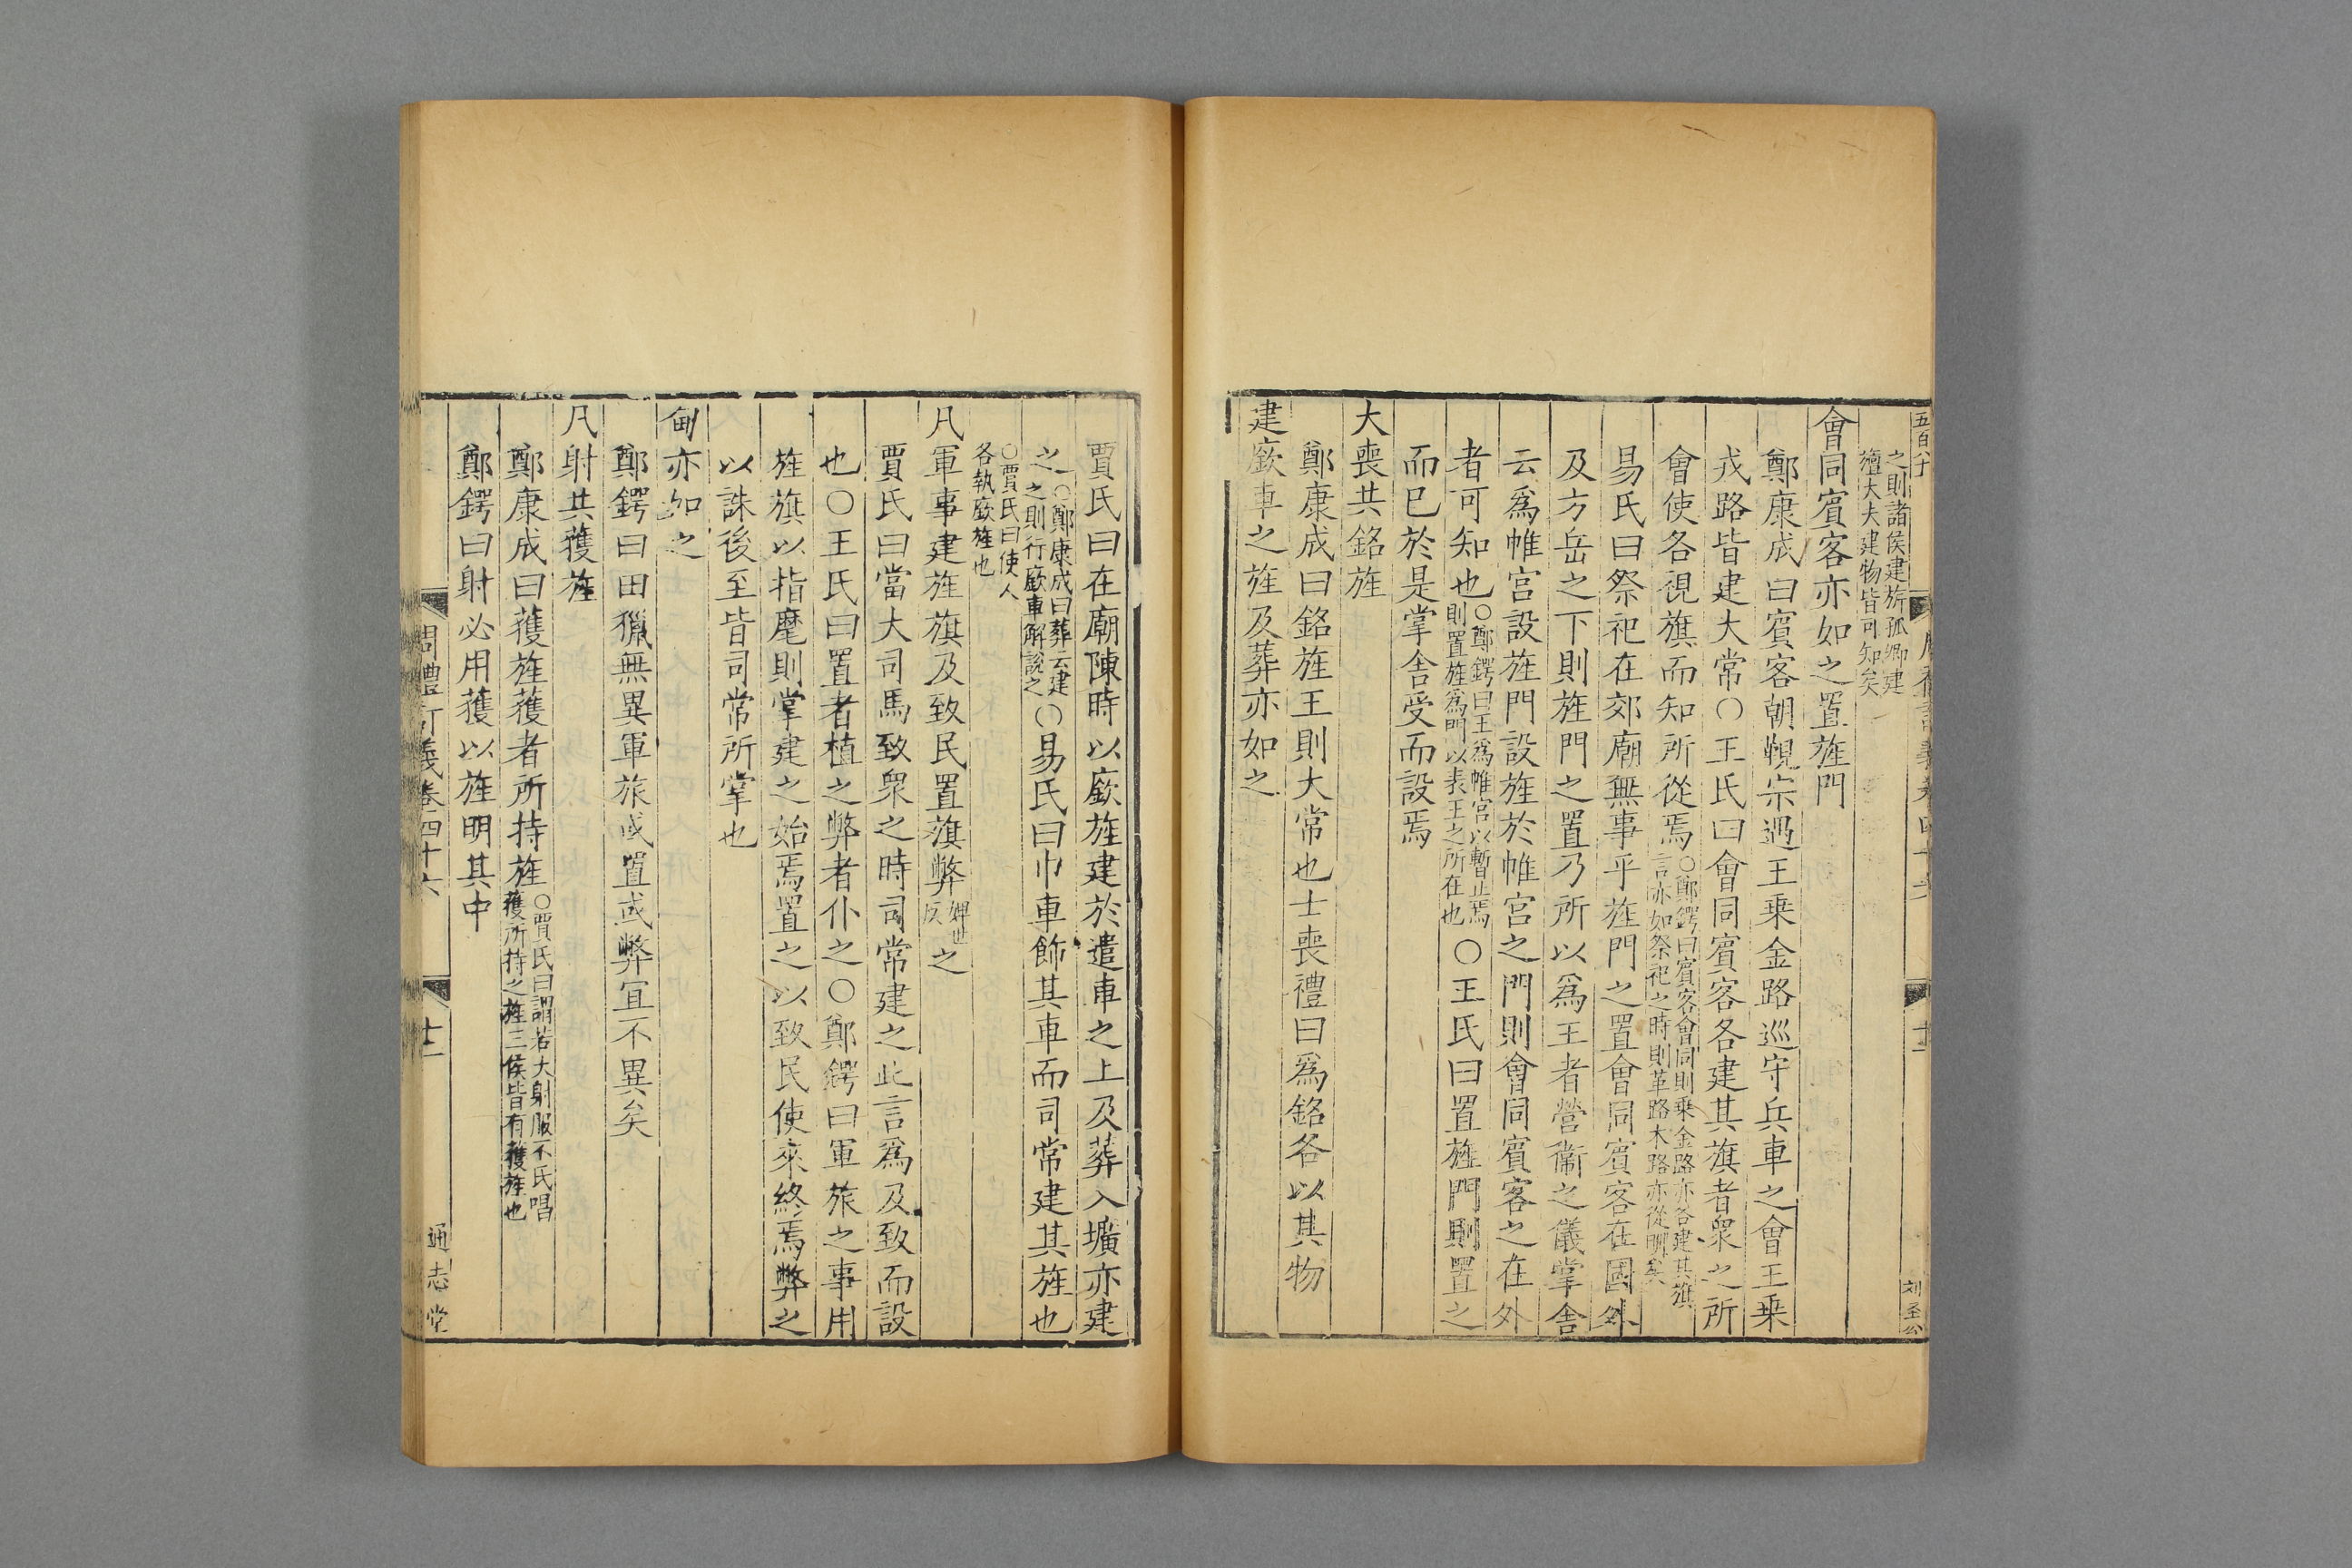 五百八十
之則諸侯建旂孤卿建
旜大夫建物皆可知矣
會同賓客亦如之置旌門
鄭康成曰賓客朝覲宗遇王乗金路巡守兵車之會王乗
戎路皆建大常○王氏曰會同賓客各建其旗者衆之所
會使各視旗而知所從焉○鄭鍔曰賓客會同則乗金路亦各建其旗
言亦如祭祀之時則革路木路亦從明矣
易氏曰祭祀在郊廟無事乎旌門之置會同賓客在國外
及方岳之下則旌門之置乃所以爲王者營衞之儀掌舍
云爲帷宫設旌門設旌於帷宫之門則會同賓客之在外
者可知也○鄭鍔曰王爲帷宫以暫止焉
則置旌爲門以表王之所在也○王氏曰置旌門則置之
而已於是掌舍受而設焉
大喪共銘旌
鄭康成曰銘旌王則大常也士喪禮曰爲銘各以其物
建廞車之旌及葬亦如之
刘至公
賈氏曰在廟陳時以廞旌建於遣車之上及葬入壙亦建
之○鄭康成曰葬云建
之則行廞車解說之○易氏曰巾車飾其車而司常建其旌也
○賈氏曰使人
各執廞旌也
凡軍事建旌旗及致民置旗弊婢世
反之
賈氏曰當大司馬致衆之時司常建之此言爲及致而設
也○王氏曰置者植之弊者仆之○鄭鍔曰軍旅之事用
旌旗以指麾則掌建之始焉置之以致民使來終焉弊之
以誅後至皆司常所掌也
甸亦如之
鄭鍔曰田獵無異軍旅或置或弊冝不異矣
凡射共獲旌
鄭康成曰獲旌獲者所持旌○賈氏曰謂若大射服不氏唱
獲所持之旌三侯皆有獲旌也
鄭鍔曰射必用獲以旌明其中
周禮訂義卷四十六
廿二
通志堂